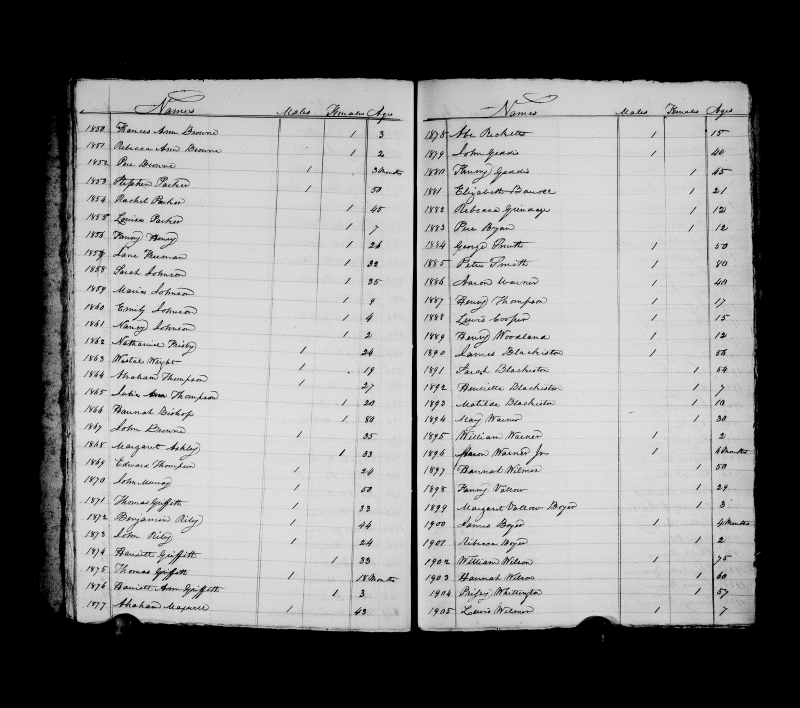 Names Males Females Ages
1850 Frances Ann Browne 1 3
1851 Rebecca Ann Browne 1 2
1852 Pere Browne 1 3 Months
1853 Stephen Parker 1 50
1854 Rachel Parker 1 45
1855 Louisa Parker 1 7
1856 Fanny Henry 1 26
1857 Jane Freeman 1 32
1858 Sarah Johnson 1 35
1859 Maria Johnson 1 9
1860 Emily Johnson 1 4
1861 Nancy Johnson 1 2
1862 Nathaniel Frisby 1 24
1863 Wright 1 19
1864 Abraham Thompson 1 27
1865 Ann Thompson 1 20
1866 Hannah Bishop 1 80
1867 John Browne 1 35
1868 Margaret Ashley 1 33
1869 Edward Thompson 1 24
1870 John Murray 1 50
1871 Thomas Griffith 1 33
1872 Benjamin Riley 1 44
1873 John Riley 1 24
1874 Harriett Griffith 1 33
1875 Thomas Griffith 1 18 Months
1876 Harriett Ann Griffith 1 3
1877 Abraham 1 43
Names Males Females Ages
1878 Abe Ricketts 1 15
1879 John Geddis 1 40
1880 Fanny Geddis 1 45
1881 Elizabeth 1 21
1882 Rebecca Grindage 1 12
1883 Pere Bryan 1 12
1884 George Smith 1 50
1885 Peter Smith 1 80
1886 Aaron Warner 1 40
1887 Henry Thompson 1 17
1888 Lewis Cooper 1 15
1889 Henry Woodland 1 12
1890 James Blackiston 1 56
1891 Sarah Blackiston 1 54
1892 Henrietta Blackiston 1 7
1893 Matilda Blackiston 1 10
1894 May Warner 1 30
1895 William Warner 1 2
1896 Aaron Warner Jr 1 6 Months
1897 Hannah Wilmer 1 50
1898 Fanny Vallow 1 24
1899 Margaret Vallow Boyer 1 3
1900 James Boyer 1 4 Months
1901 Rebecca Boyer 1 2
1902 William Wilson 1 75
1903 Hannah Wilson 1 60
1904 Whittington 1 57
1905 Lewis Wilmer 1 7